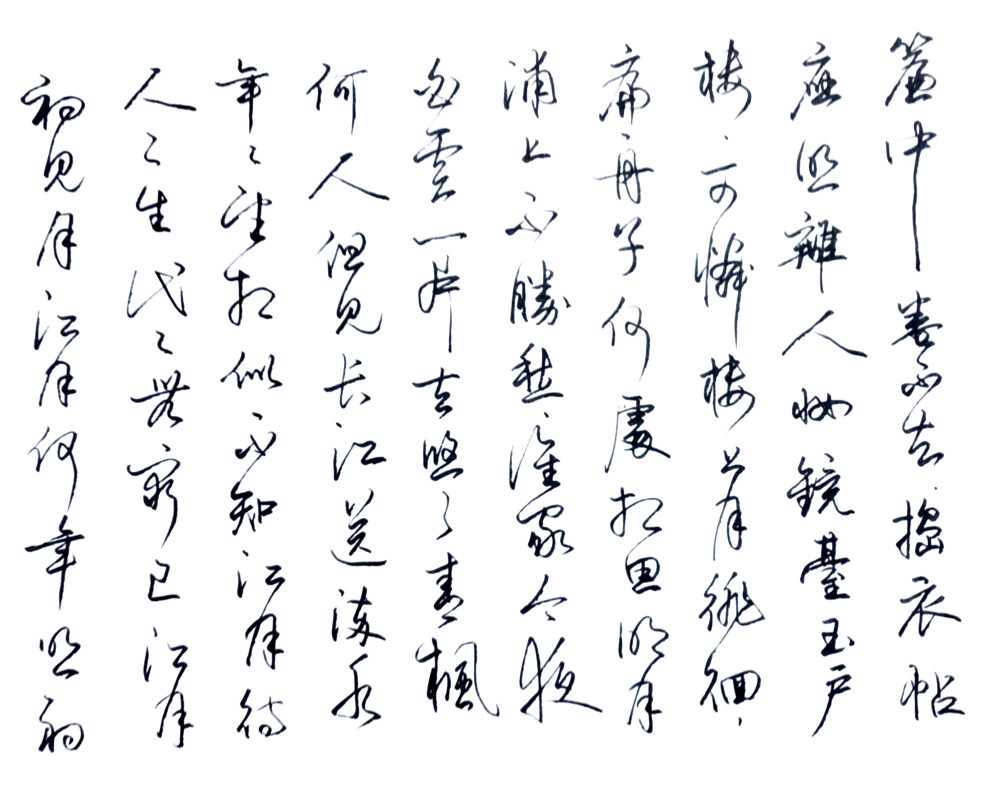 初見月江月何年照初
人々生代々無窮已江月
年々望相似不知江月待
何人但見长江送流水
白雲一片去悠々青楓
浦上不勝愁誰家今夜
扁舟子何處相思明月
樓可憐樓上月徘徊
應照離人妝鏡臺玉戶
簾中卷不去搗衣帖